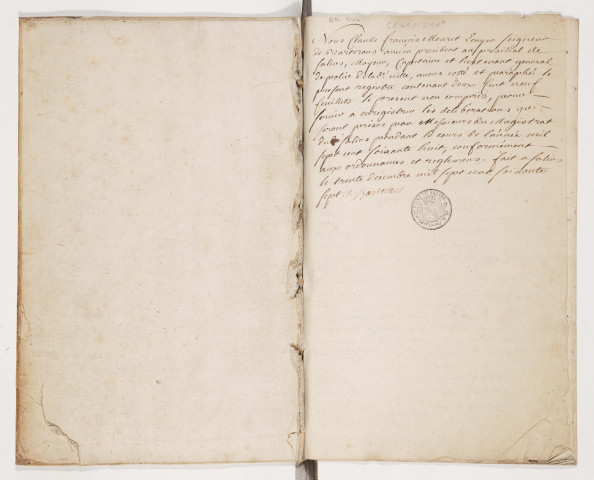 Nous Claude François Mouret Ecuyer seigneur
de ancien president au presidial de
Salins, Mayeur, Capitaine et lieutenant general
de police de ladë ville, avons cotté et paraphé le
present registre contenant deux cent neuf
feuillets le present non compris, pour
servir a enregistrer les deliberations qui
seront prises par Messieurs du Magistrat
dudë Salins pendant le cours de l'année mil
sept cent soixante huit, conformément
aux ordonnances et reglemens. fait a Salins
le trente decembre mil sept cent soixante
sept.